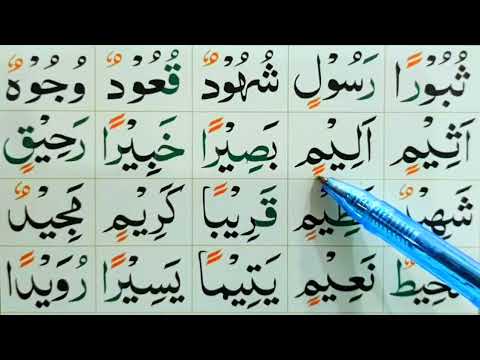 ثُبُوْرًا رَسُوْلٍ شُهُوْدٌ قُعُوْدٌ وُجُوْهٌ
اَثِيْمٍ اَلِيْمٍ بَصِيْرًا خَبِيْرًا رَحِيْقٍ
شَهِيْدٌ عَظِيْمٍ قَرِيْبًا كَرِيْمٍ مَجِيْدٌ
مُحِيْطٌ نَعِيْمٍ يَتِيْمًا يَسِيْرًا رُوَيْدًا